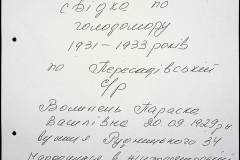 свідка по
голодомору
1931-1933 років
по Пересадівській
с/р
Волинець Параска
Василівна 20.09.1929 р.н.
вулиця Рудницького 34